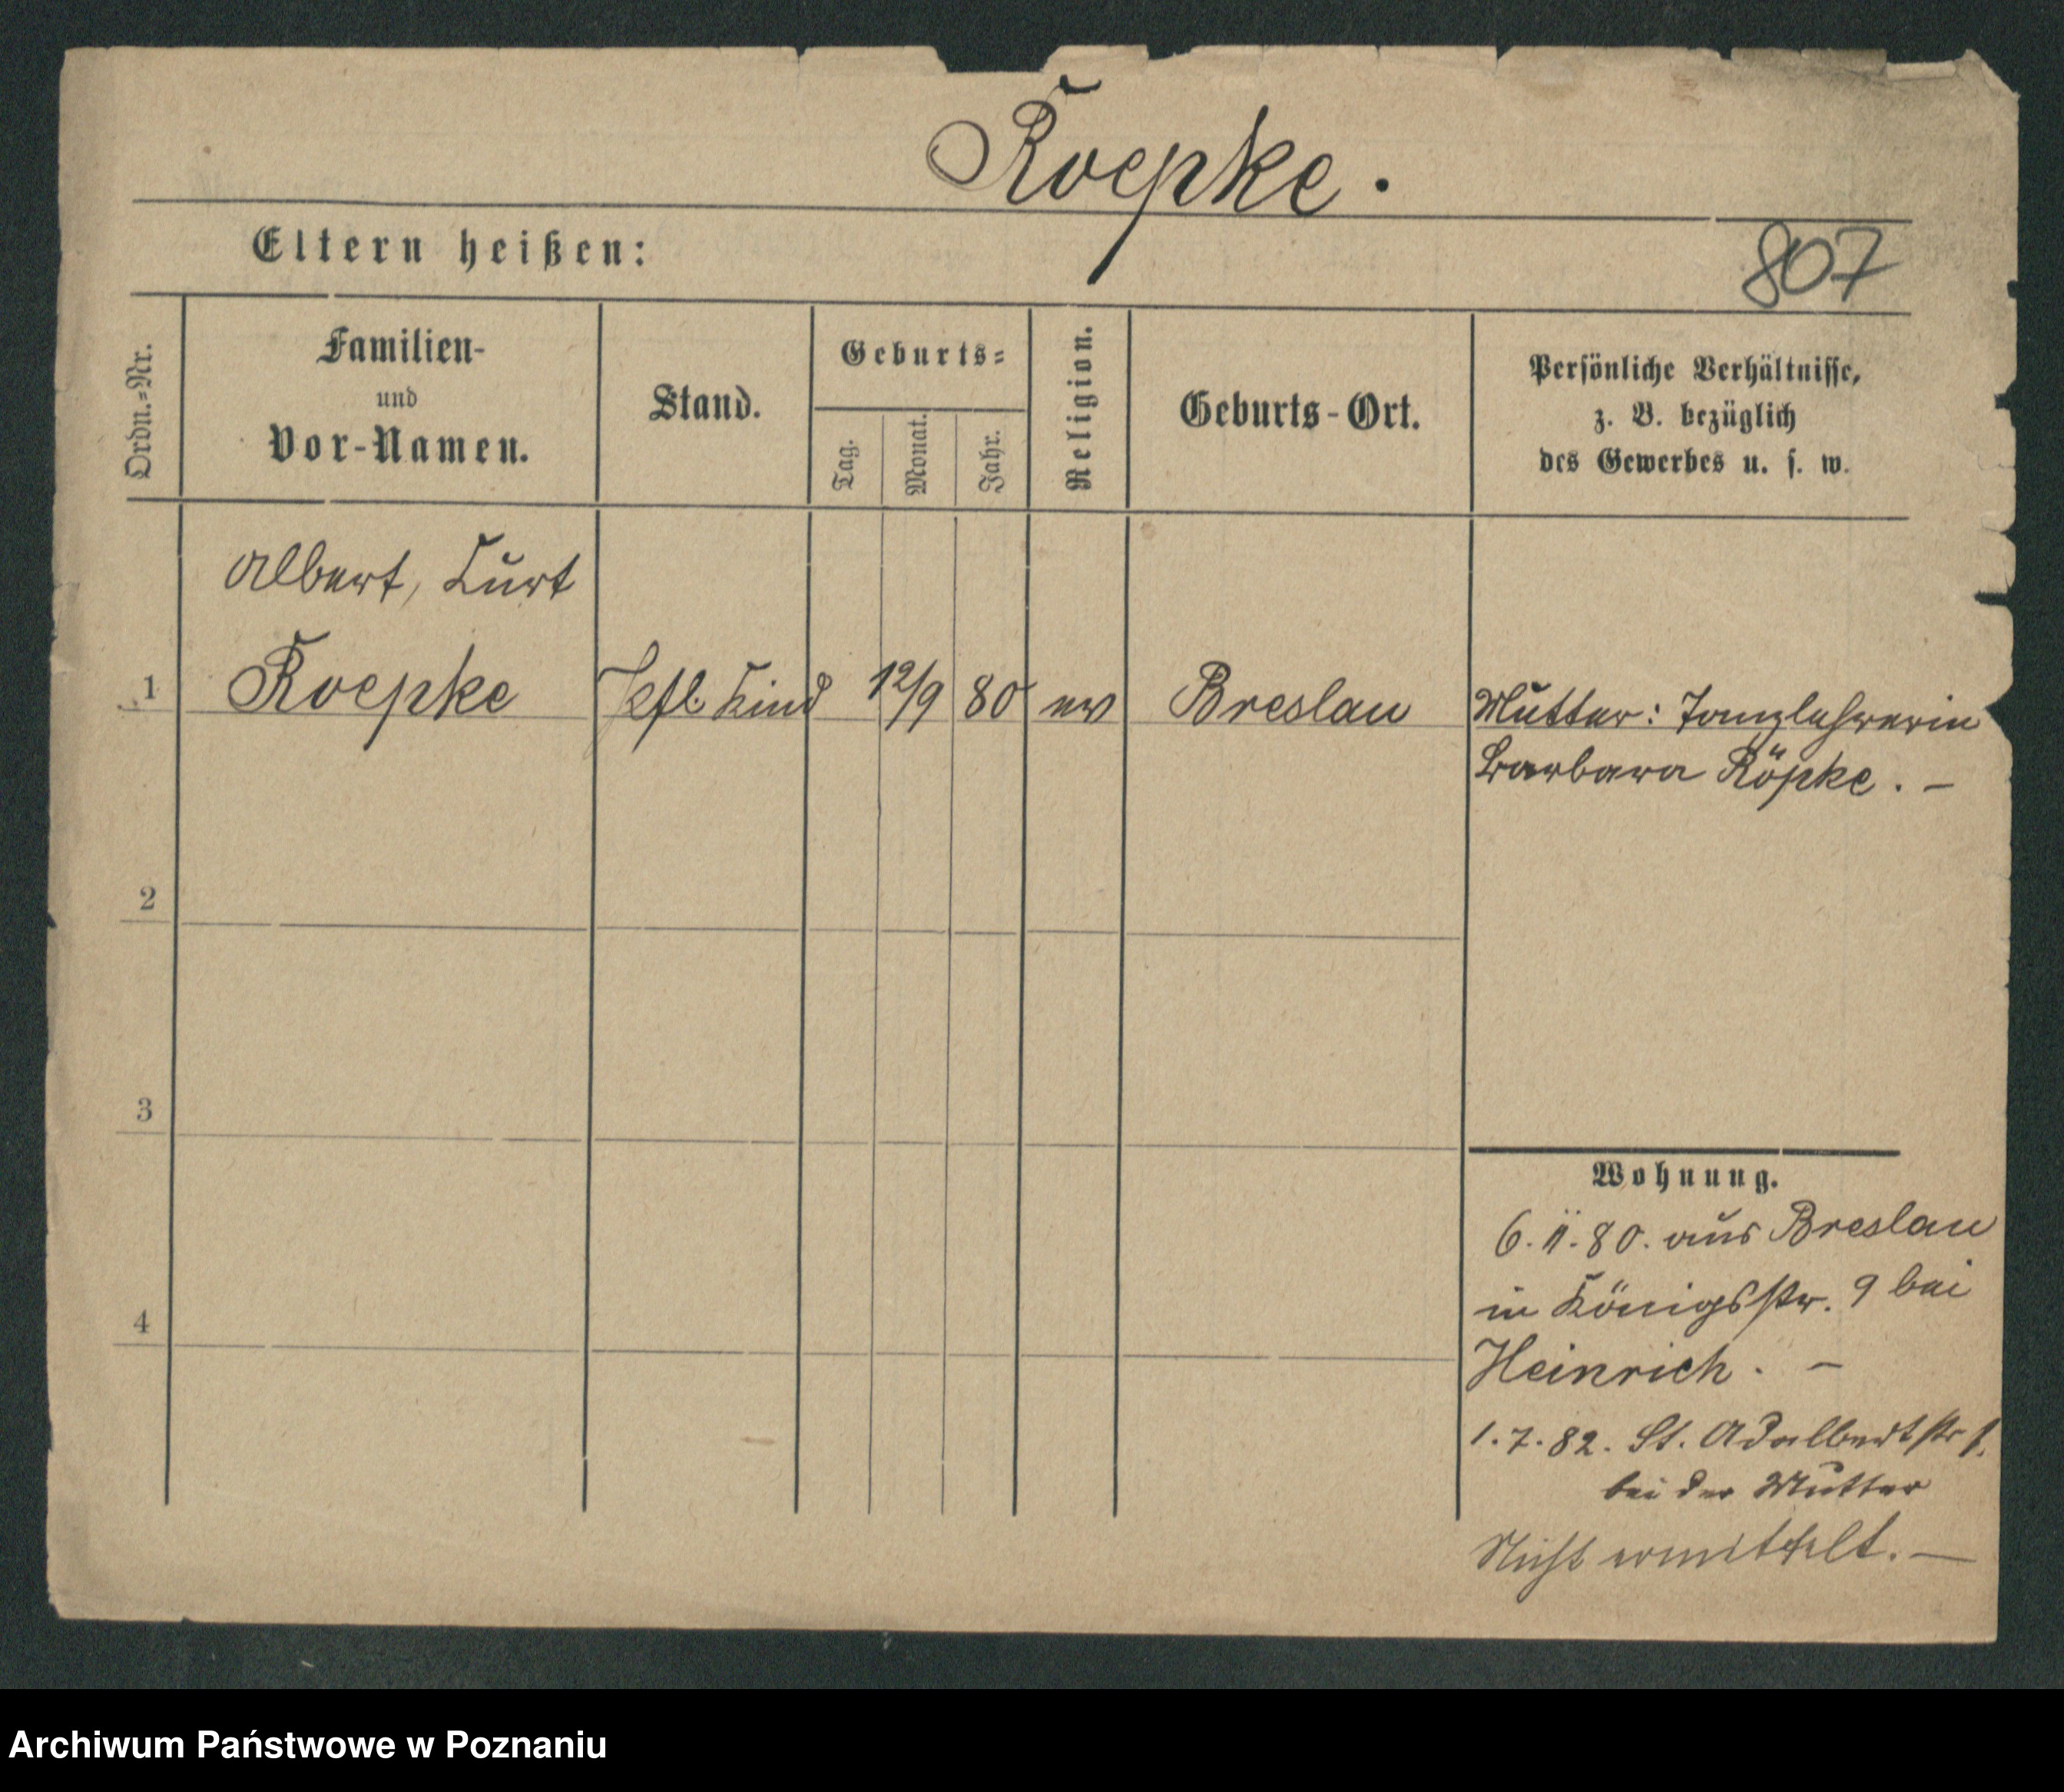 Roepke.
Eltern heißen:
807
Ordn.-Nr.
Familien-
und
Vor-Namen.
Stand.
Geburts-
Tag.
Monat.
Jahr.
Religion.
Geburts-Ort.
Persönliche Verhältnisse,
z. B. bezüglich
des Gewerbes u. s. w.
Albert, Kurt
1 Roepke Kind 12/9 80 ev Breslau Mutter: Tanzlehrerin
Barbara Röpke. –
2
3
4
Wohnung.
6. 11. 80. aus Breslau
in Königsstr. 9 bei
Heinrich. –
1. 7. 82. St. Adalbertstr 1.
bei der Mutter
Nicht ermittelt. –
Archiwum Państwowe w Poznaniu